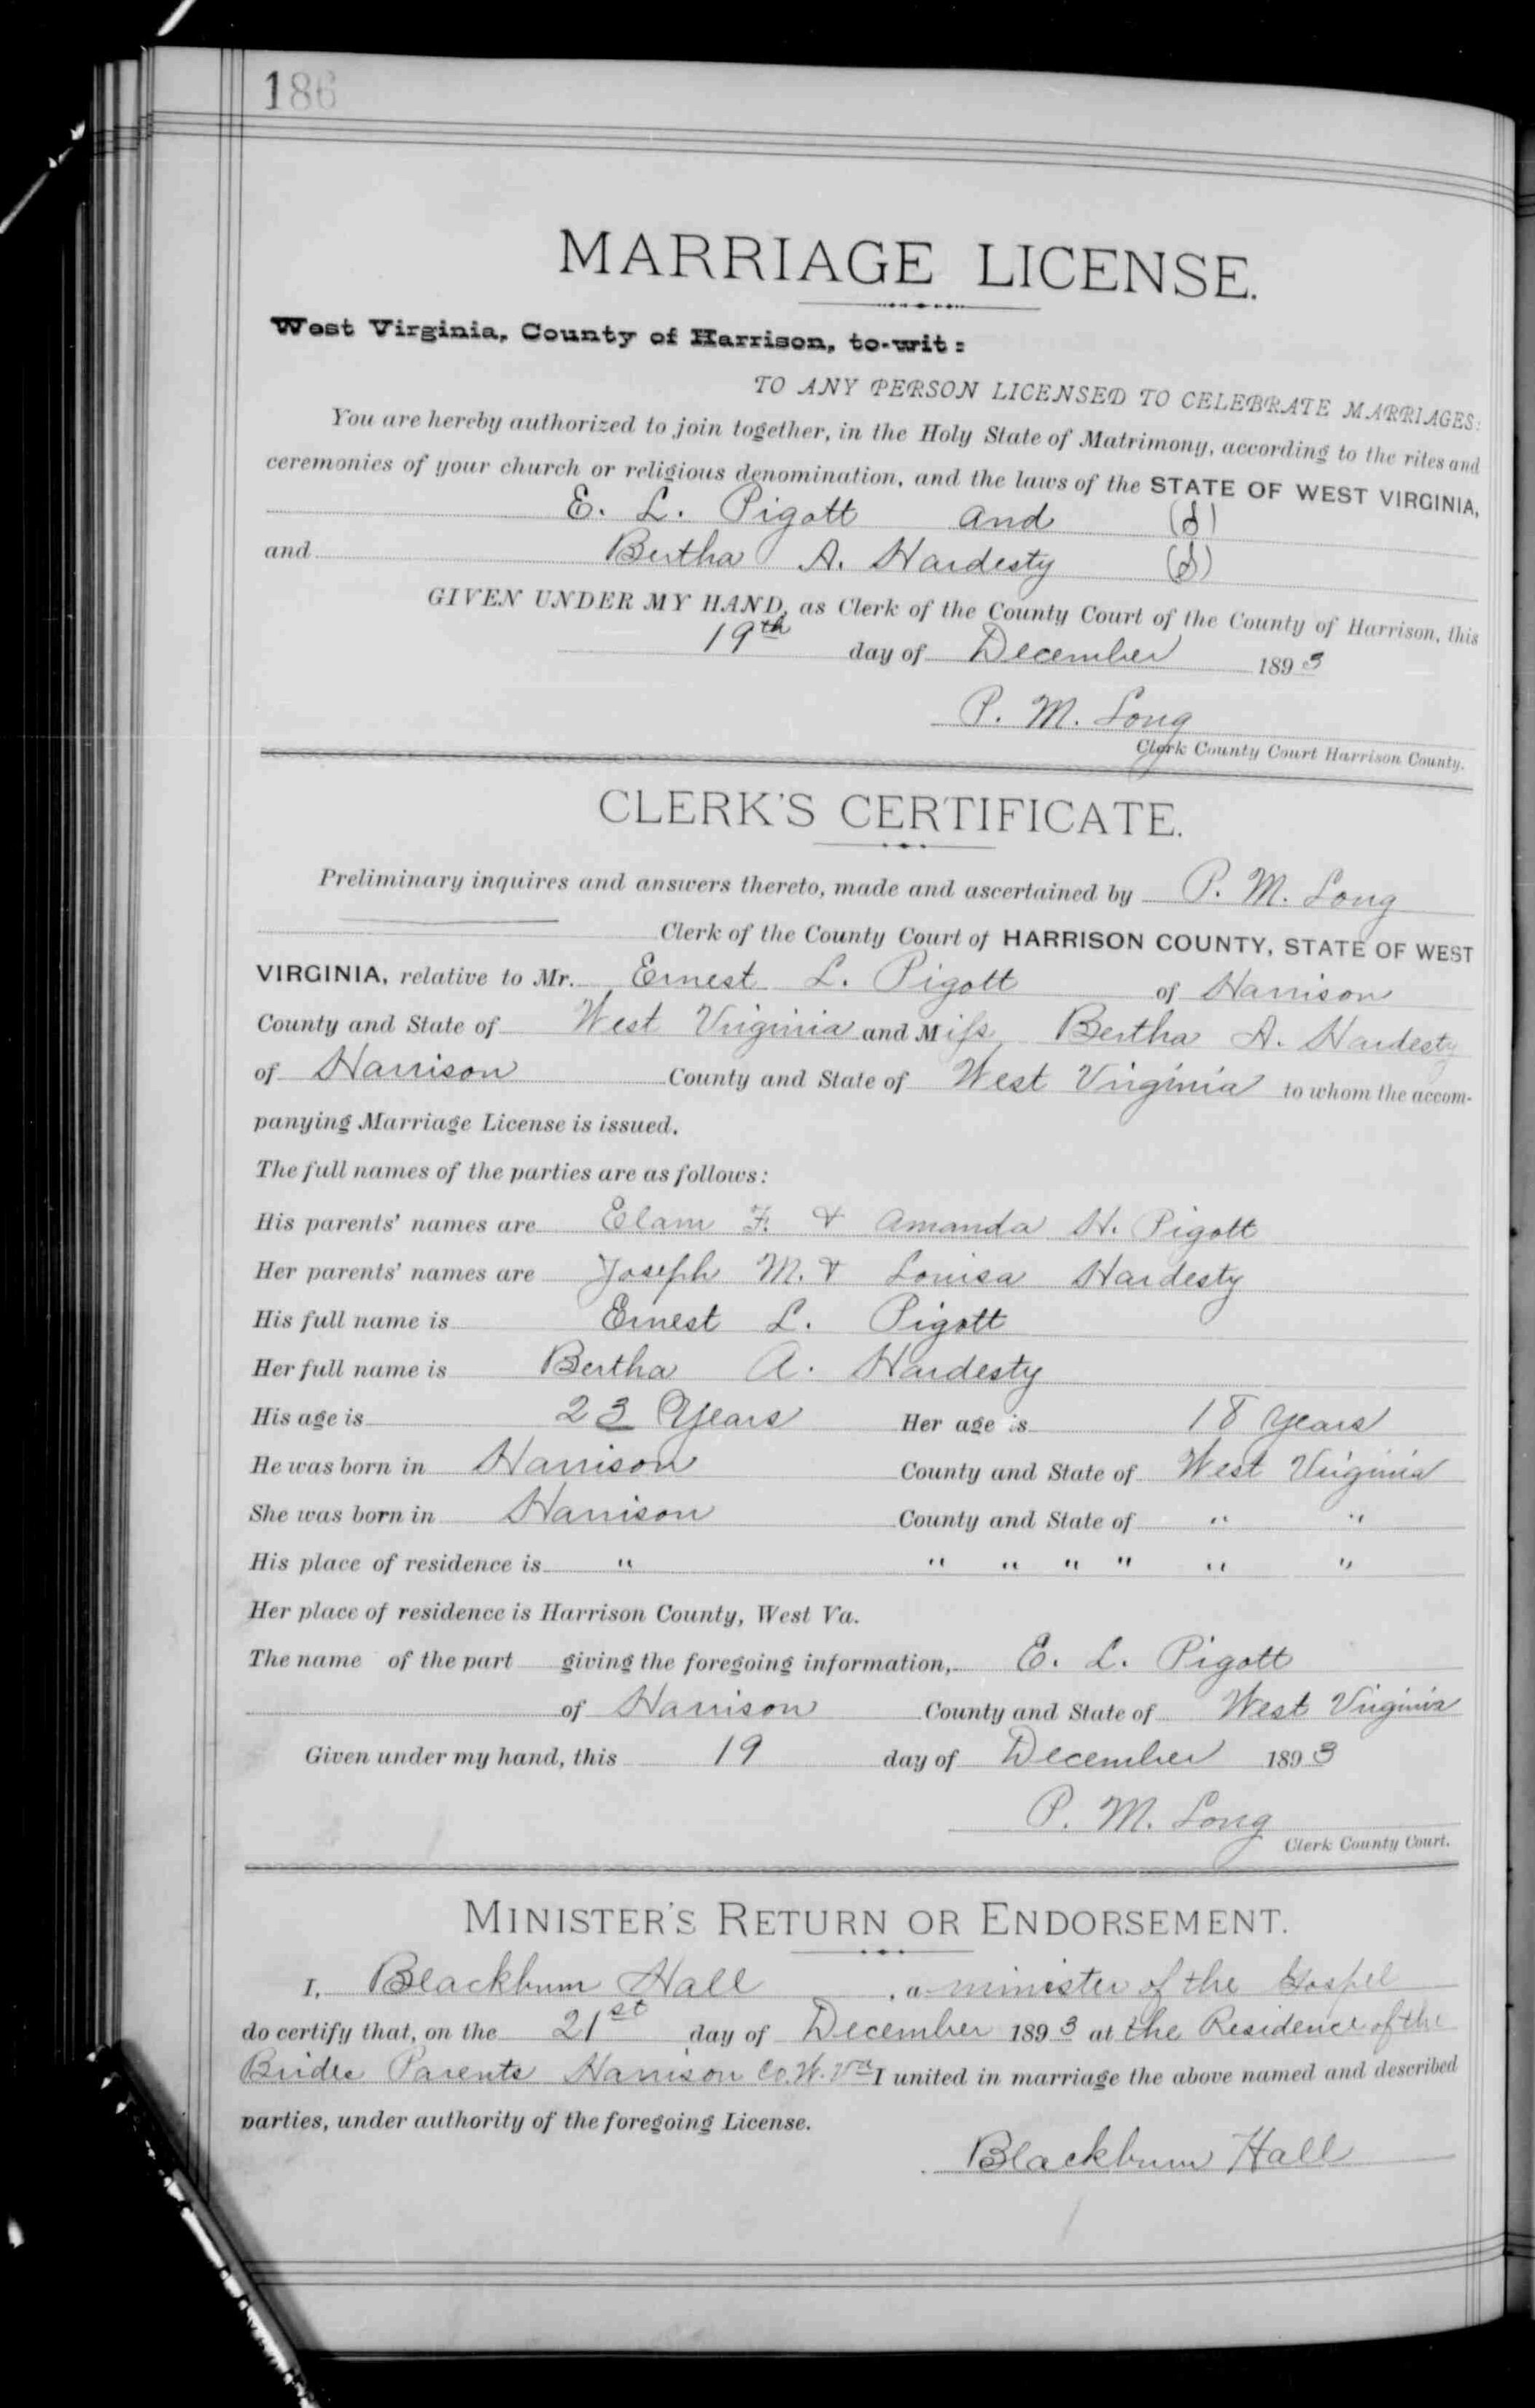 186
MARRIAGE LICENSE.
West Virginia, County of Harrison, to-wit:
TO ANY PERSON LICENSED TO CELEBRATE MARRIAGES:
You are hereby authorized to join together, in the Holy State of Matrimony, according to the rites and
ceremonies of your church or religious denomination, and the laws of the STATE OF WEST VIRGINIA,
E. L. Pigott and (S)
and Bertha A. Hardesty (S)
GIVEN UNDER MY HAND, as Clerk of the County Court of the County of Harrison, this
19th day of December 1893
P. M. Long
Clerk County Court Harrison County.
CLERK'S CERTIFICATE.
Preliminary inquires and answers thereto, made and ascertained by P. M. Long
Clerk of the County Court of HARRISON COUNTY, STATE OF WEST
VIRGINIA, relative to Mr. Ernest L. Pigott of Harrison
County and State of West Virginia and Miss Bertha A. Hardesty
of Harrison County and State of West Virginia to whom the accom-
panying Marriage License is issued.
The full names of the parties are as follows:
His parents' names are Elam F. & Amanda H. Pigott
Her parents' names are Joseph M. & Louisa Hardesty
His full name is Ernest L. Pigott
Her full name is Bertha A. Hardesty
His age is 23 Years Her age is 18 years
He was born in Harrison County and State of West Virginia
She was born in Harrison County and State of " "
His place of residence is " " " " " " "
Her place of residence is Harrison County, West Va.
The name of the part giving the foregoing information, E. L. Pigott
of Harrison County and State of West Virginia
Given under my hand, this 19 day of December 1893
P. M. Long
Clerk County Court.
MINISTER'S RETURN OR ENDORSEMENT.
I, Blackburn Hall, a minister of the Gospel
do certify that, on the 21st day of December 1893 at the Residence of the
Brides Parents Harrison Co. W. Va I united in marriage the above named and described
parties, under authority of the foregoing License.
Blackburn Hall